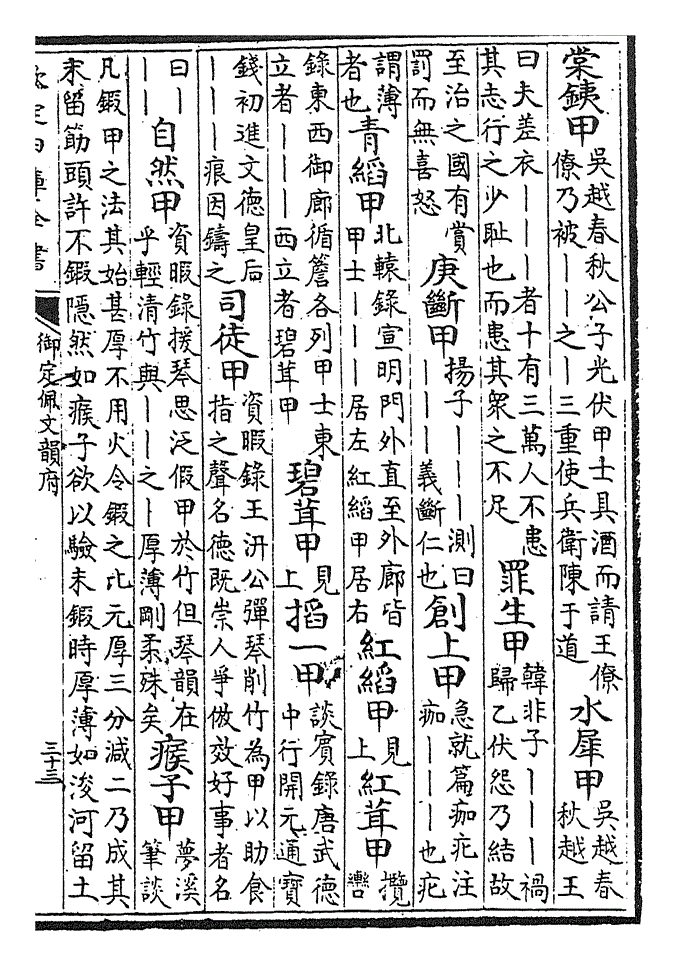 棠銕甲
吳越春秋公子光伏甲士具酒而請王僚
僚乃被丨丨之丨三重使兵衛陳于道
水犀甲
吳越春
秋越王
曰夫差衣丨丨丨者十有三萬人不患
其志行之少恥也而患其衆之不足
罪生甲
韓非子丨丨丨禍
歸乙伏怨乃結故
至治之國有賞
罰而無喜怒
庚斷甲
揚子丨丨丨測曰
丨丨丨義斷仁也
創上甲
急就篇痂疕注
痂丨丨丨也疕
謂薄
者也
青縚甲
北轅錄宣明門外直至外廊皆
甲士丨丨丨居左紅縚甲居右
紅縚甲
見
上
紅茸甲
攬
轡
錄東西御廊循簷各列甲士東
立者丨丨丨西立者碧茸甲
碧茸甲
見
上
搯一甲
談賓錄唐武德
中行開元通寶
錢初進文德皇后
丨丨丨痕因鑄之
司徒甲
資暇錄王汧公彈琴削竹為甲以助食
指之聲名德既崇人爭倣效好事者名
曰丨
丨丨
自然甲
資暇錄援琴思泛假甲於竹但琴韻在
乎輕清竹與丨丨之丨厚薄剛柔殊矣
瘊子甲
夢溪
筆談
凡鍜甲之法其始甚厚不用火令鍜之比元厚三分減二乃成其
末留筋頭許不鍜隱然如瘊子欲以驗未鍜時厚薄如浚河留土
欽定四庫全書
御定佩文韻府
三十三